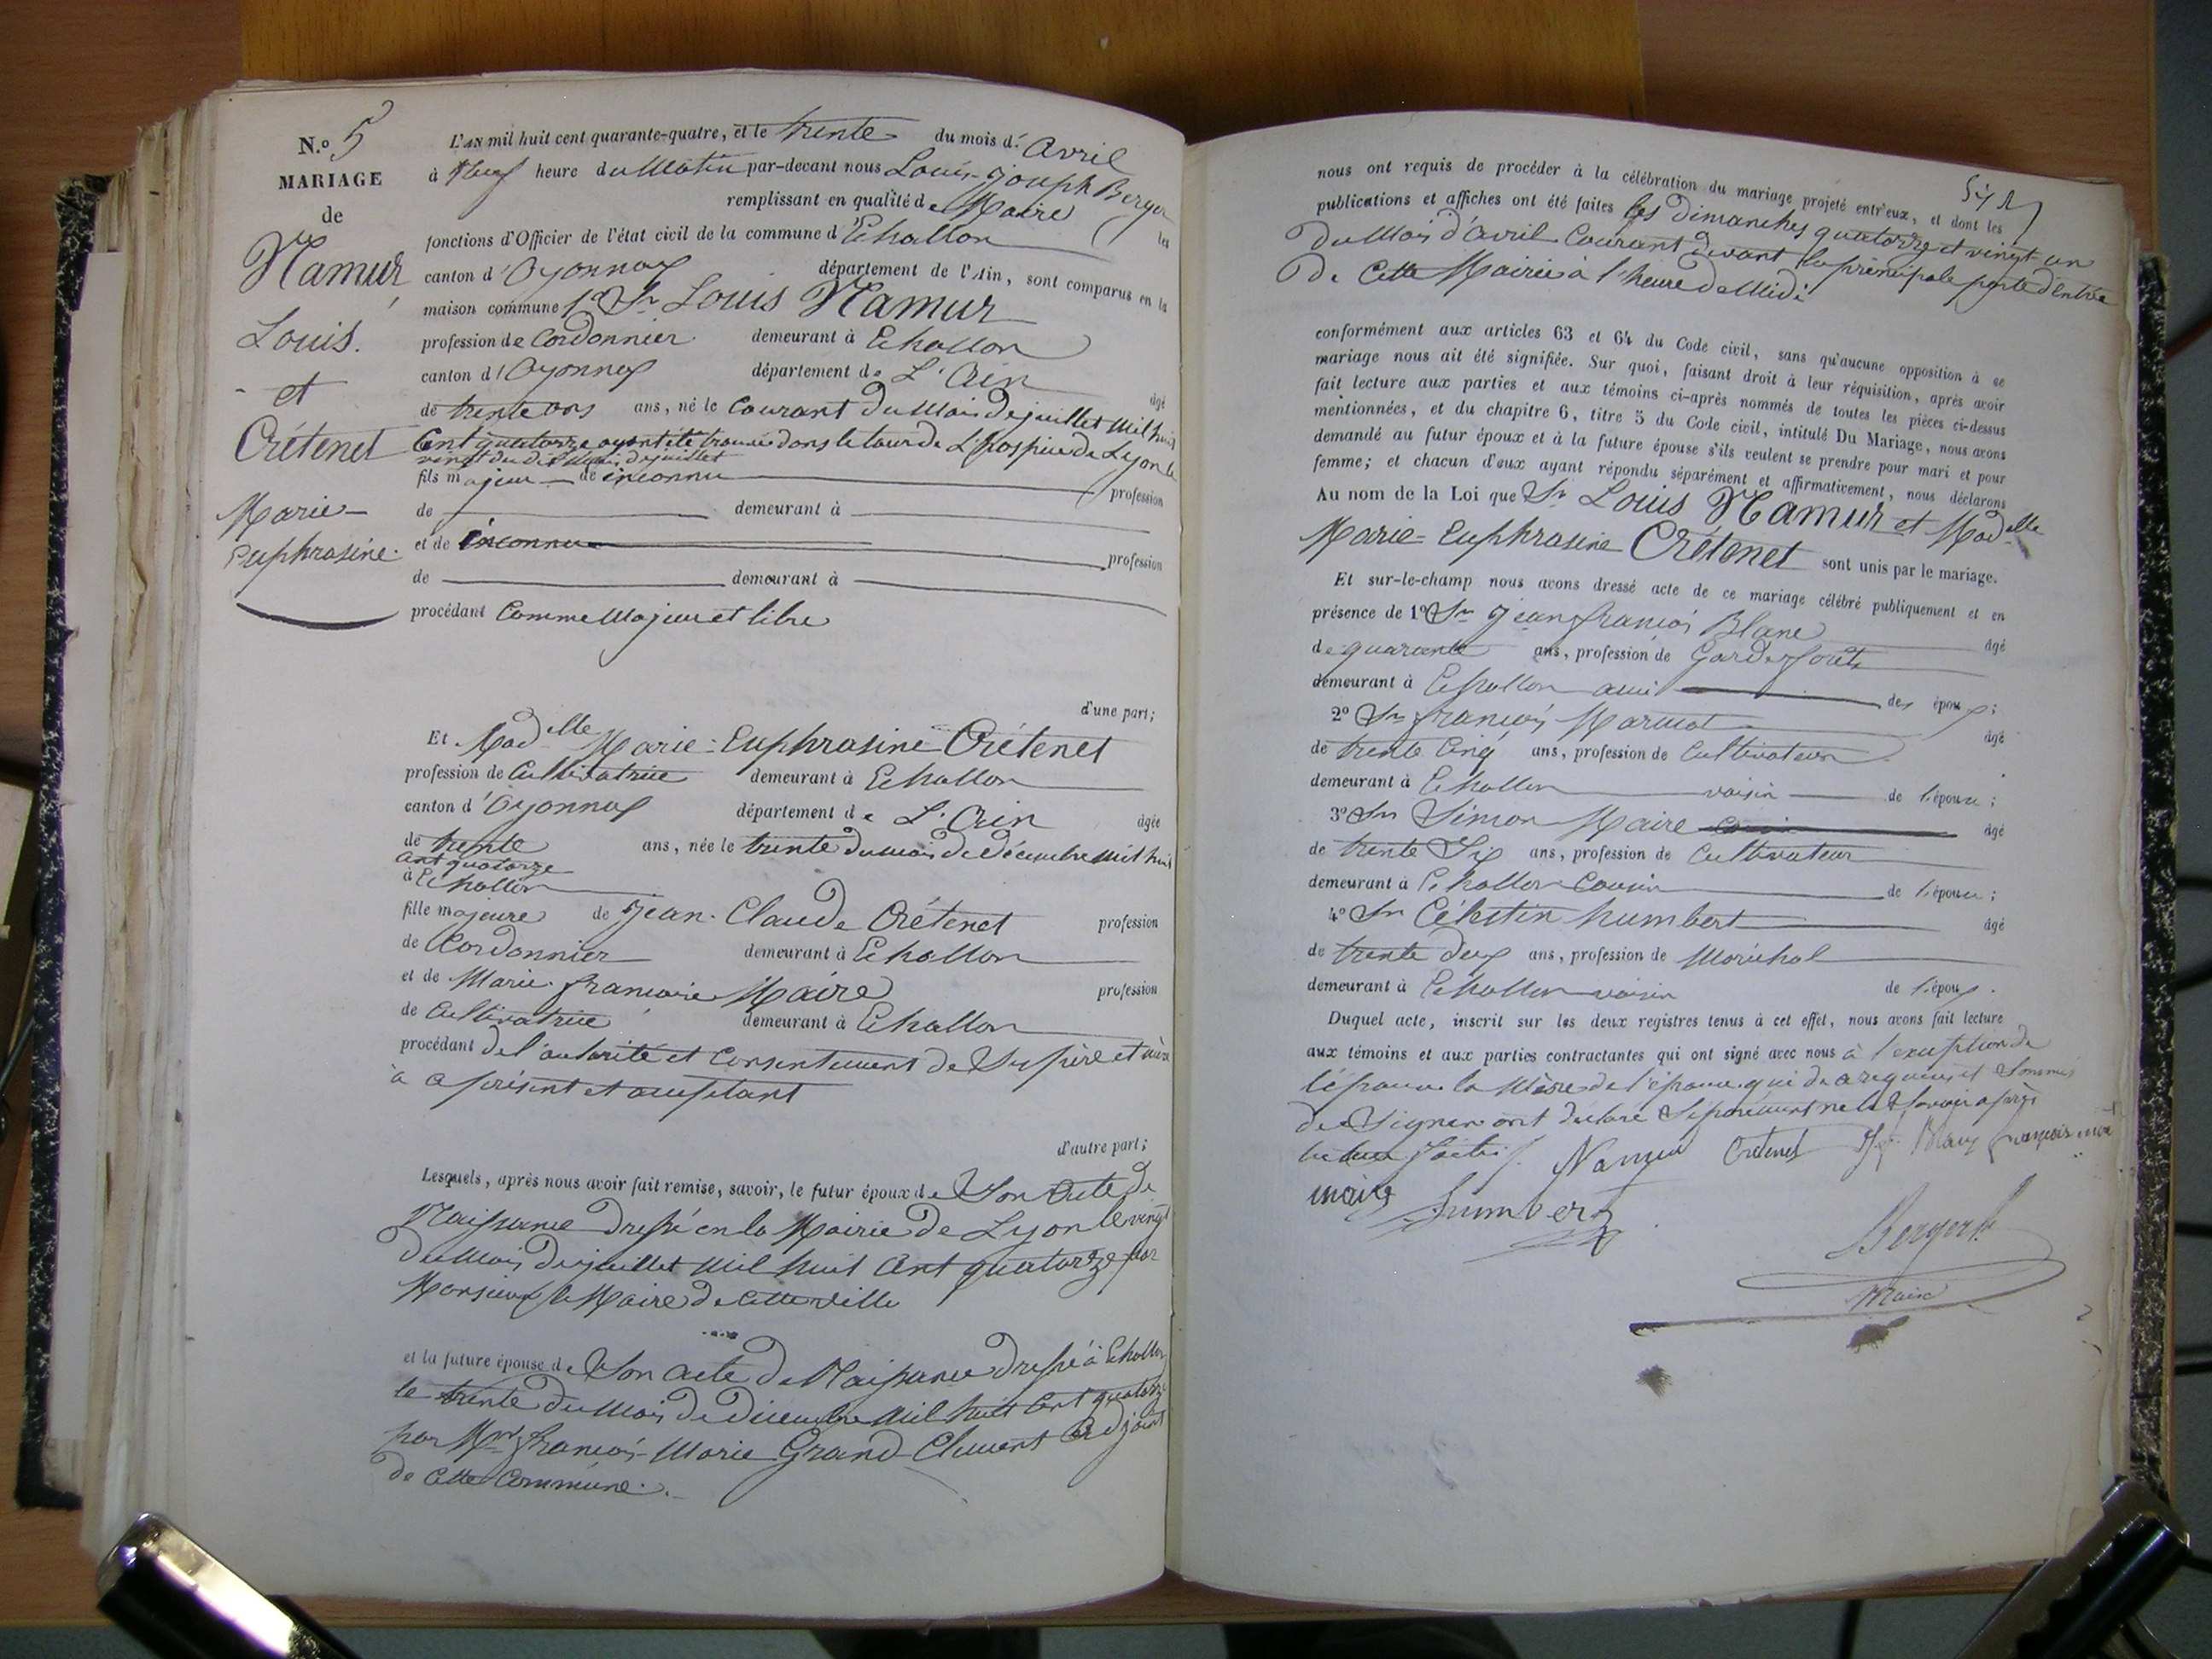 N.º 5
MARIAGE
de
Namur
Louis.
et
Crétenet
Marie-
Euphrasine.
L'AN mil huit cent quarante-quatre, et le trente du mois d' Avril
à Neuf heure du Matin par-devant nous Louis-Joseph Berger
remplissant en qualité de Maire les
fonctions d'Officier de l'état civil de la commune d'Echallon
canton d'Oyonnax département de l'Ain, sont comparus en la
maison commune 1º Sr Louis Namur
profession de Cordonnier demeurant à Echallon
canton d'Oyonnax département de L'Ain âgé
de trente ans ans, né le Courant du Mois de juillet Mil huit
Cent quatorze ayant été trouvé dans le tour de L'hospice de Lyon le
vingt du dit Mois de juillet
fils majeur de inconnu profession
de demeurant à
et de inconnue profession
de demeurant à
procédant Comme Majeur et libre
d'une part;
Et Madelle Marie-Euphrasine Crétenet
profession de Cultivatrice demeurant à Echallon
canton d'Oyonnax département de L'Ain âgée
de trente ans, née le trente du mois de Décembre Mil huit
Cent quatorze
à Echallon
fille majeure de Jean-Claude Crétenet profession
de Cordonnier demeurant à Echallon
et de Marie françoise Maire profession
de Cultivatrice demeurant à Echallon
procédant de l'autorité et Consentement de Ses père et mère
à ce présent et acceptant
d'autre part;
Lesquels, après nous avoir fait remise, savoir, le futur époux de Son Acte de
Naissance dressé en la Mairie de Lyon le vingt
du Mois de juillet Mil huit Cent quatorze par
Monsieur le Maire de Cette Ville
et la future épouse de Son acte de Naissance dressé à Echallon
le trente du Mois de Décembre Mil huit Cent quatorze
par Mr françois-Marie Grand-Clément Adjoint
de Cette Commune.
nous ont requis de procéder à la célébration du mariage projeté entr'eux, et dont les
publications et affiches ont été faites les Dimanches quatorze et vingt un
du Mois d'avril Courant devant la principale porte d'Entrée
de Cette Mairie à l'heure de Midi
conformément aux articles 63 et 64 du Code civil, sans qu'aucune opposition à ce
mariage nous ait été signifiée. Sur quoi, faisant droit à leur réquisition, après avoir
fait lecture aux parties et aux témoins ci-après nommés de toutes les pièces ci-dessus
mentionnées, et du chapitre 6, titre 5 du Code civil, intitulé Du Mariage, nous avons
demandé au futur époux et à la future épouse s'ils veulent se prendre pour mari et pour
femme; et chacun d'eux ayant répondu séparément et affirmativement, nous déclarons
Au nom de la Loi que Sr Louis Namur et Madelle
Marie-Euphrasine Crétenet sont unis par le mariage.
Et sur-le-champ nous avons dressé acte de ce mariage célébré publiquement et en
présence de 1º Sr Jean françois Blanc âgé
de quarante ans, profession de Garde forêts
demeurant à Echallon ami des époux;
2º Sr françois Marmot âgé
de trente Cinq ans, profession de Cultivateur
demeurant à Echallon voisin de l'épouse;
3º Sr Simon Maire âgé
de trente Six ans, profession de Cultivateur
demeurant à Echallon Cousin de l'épouse;
4º Sr Célestin humbert âgé
de trente deux ans, profession de Maréchal
demeurant à Echallon voisin de l'époux.
Duquel acte, inscrit sur les deux registres tenus à cet effet, nous avons fait lecture
aux témoins et aux parties contractantes qui ont signé avec nous à l'exception de
l'épouse la Mère de l'épouse qui de ce requises et Sommées
de Signer ont déclaré Séparément ne le Savoir après
lecture faite. Namur Crétenet Blanc françois
maire humbert
Berger
Maire